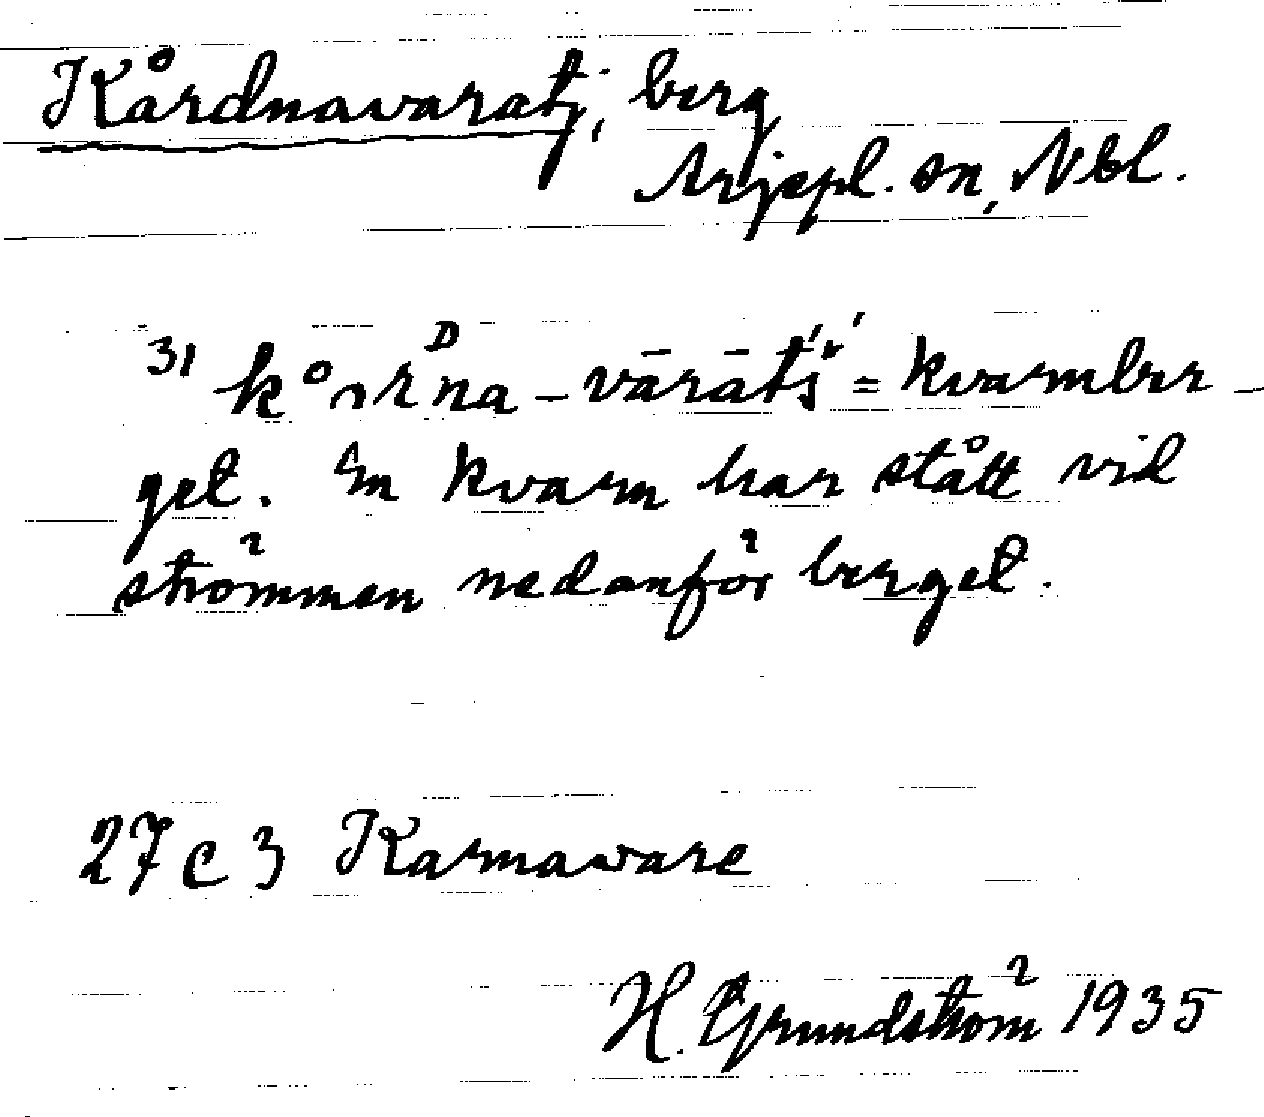 Kårdnavaratj, berg
Arjepl. sn, Nbl.
31 kårᴰna-vārātś́ = kvarnber-
get. En kvarn har stått vid
strömmen nedanför berget.
27 c 3 Karnavare
H. Grundström 1935